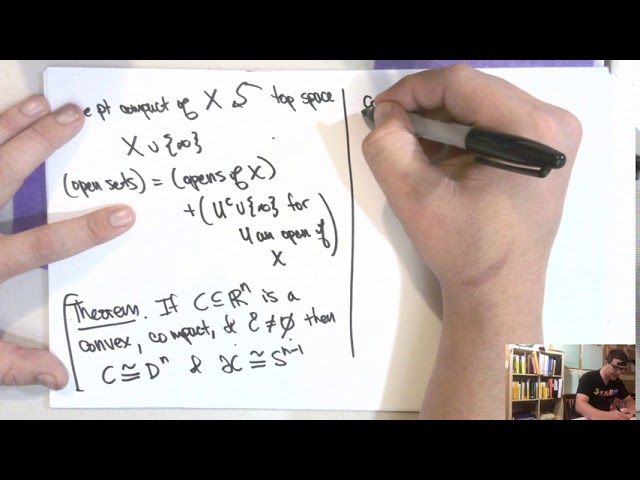 pt compact of X top space
X ∪ {∞}
(open sets) = (opens of X)
+ (Uᶜ ∪ {∞} for
U an open of
X)
Theorem. If C ⊆ ℝⁿ is a
convex, compact, & C̊ ≠ ∅ then
C ≅ Dⁿ & ∂C ≅ Sⁿ⁻¹